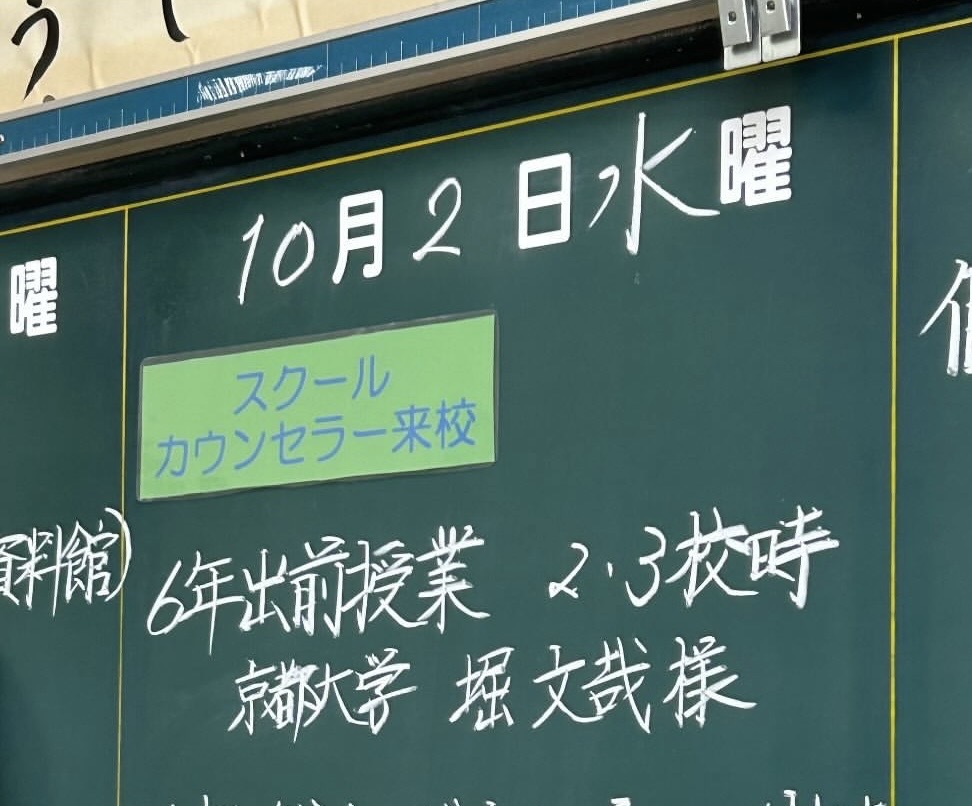 う
10月2日水曜
曜
スクール
カウンセラー来校
資料館)
6年出前授業 2・3校時
京都大学 堀文哉様